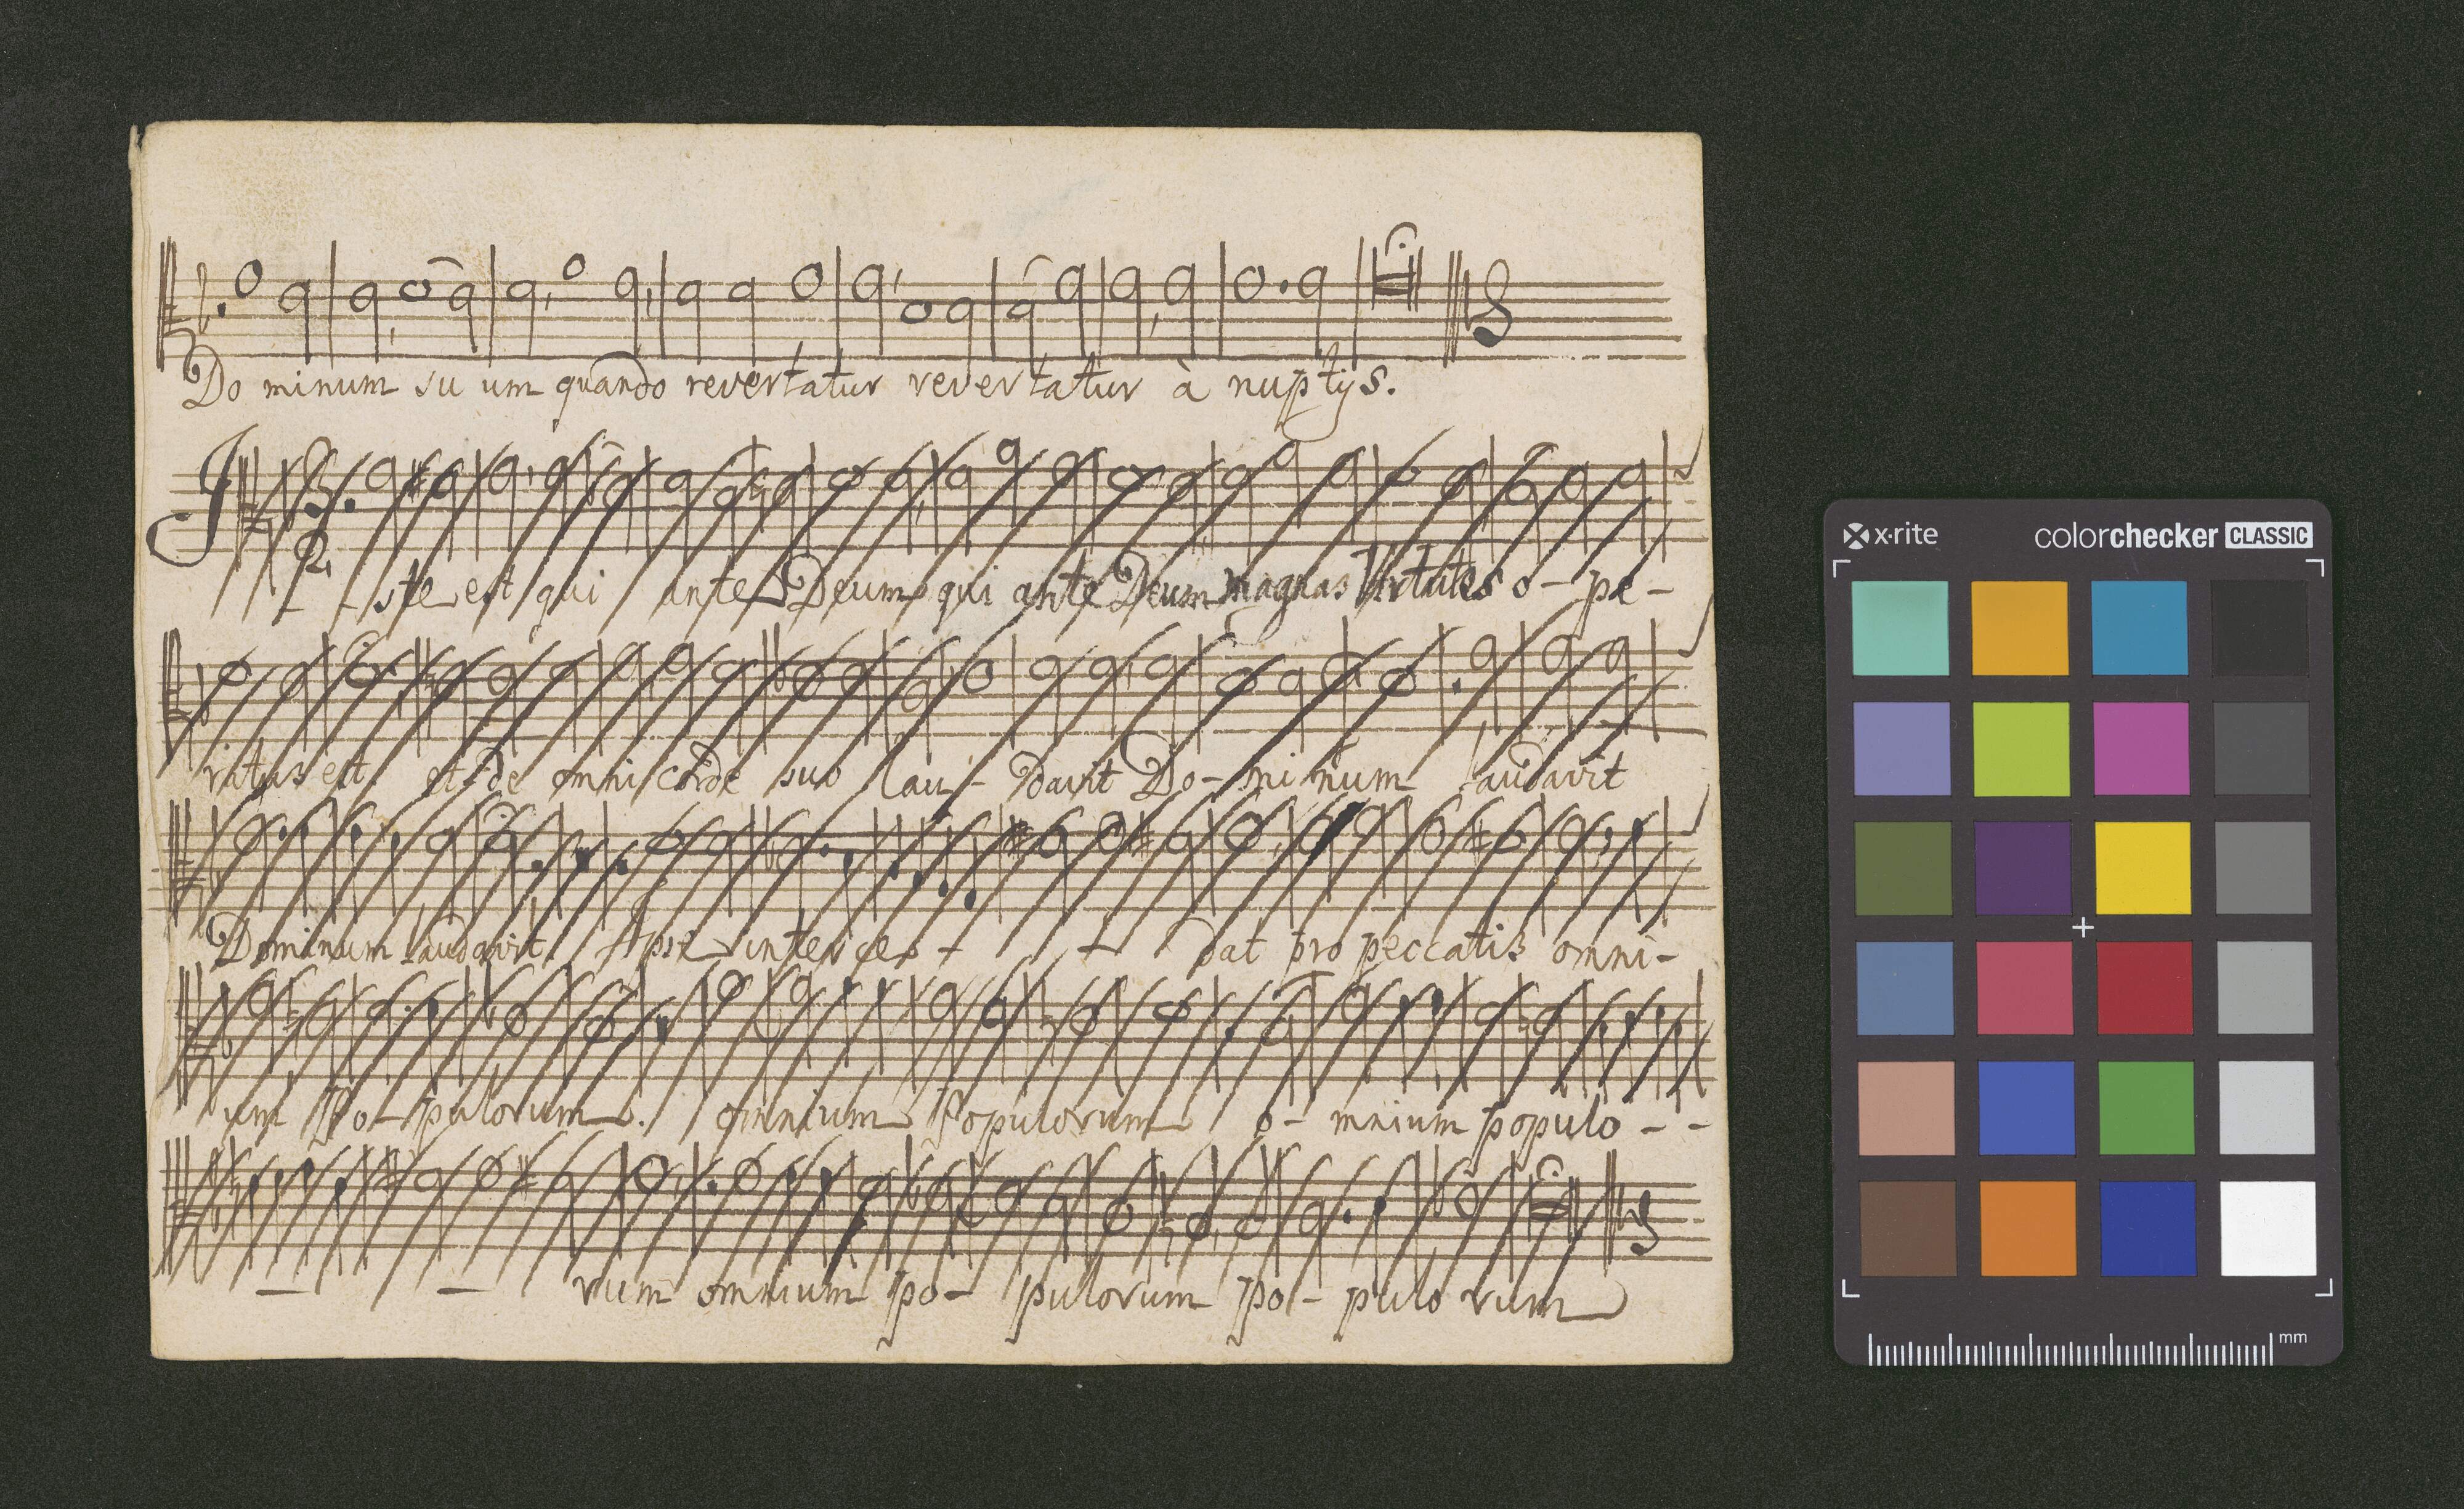 Do minum su um quando revertatur revertatur à nuptijs.
I - - ste est qui ante Deum qui ante Deum magnas Virtutes o - pe -
ratus est et de omni corde suo lau - davit Do - mi num laudavit
Dominum laudavit. Ipse interces - - dat pro peccatis omni -
um Po - pulorum. omnium Populorum o - mnium populo - -
- - rum omnium po - pulorum po - pulo rum
x·rite colorchecker CLASSIC
mm